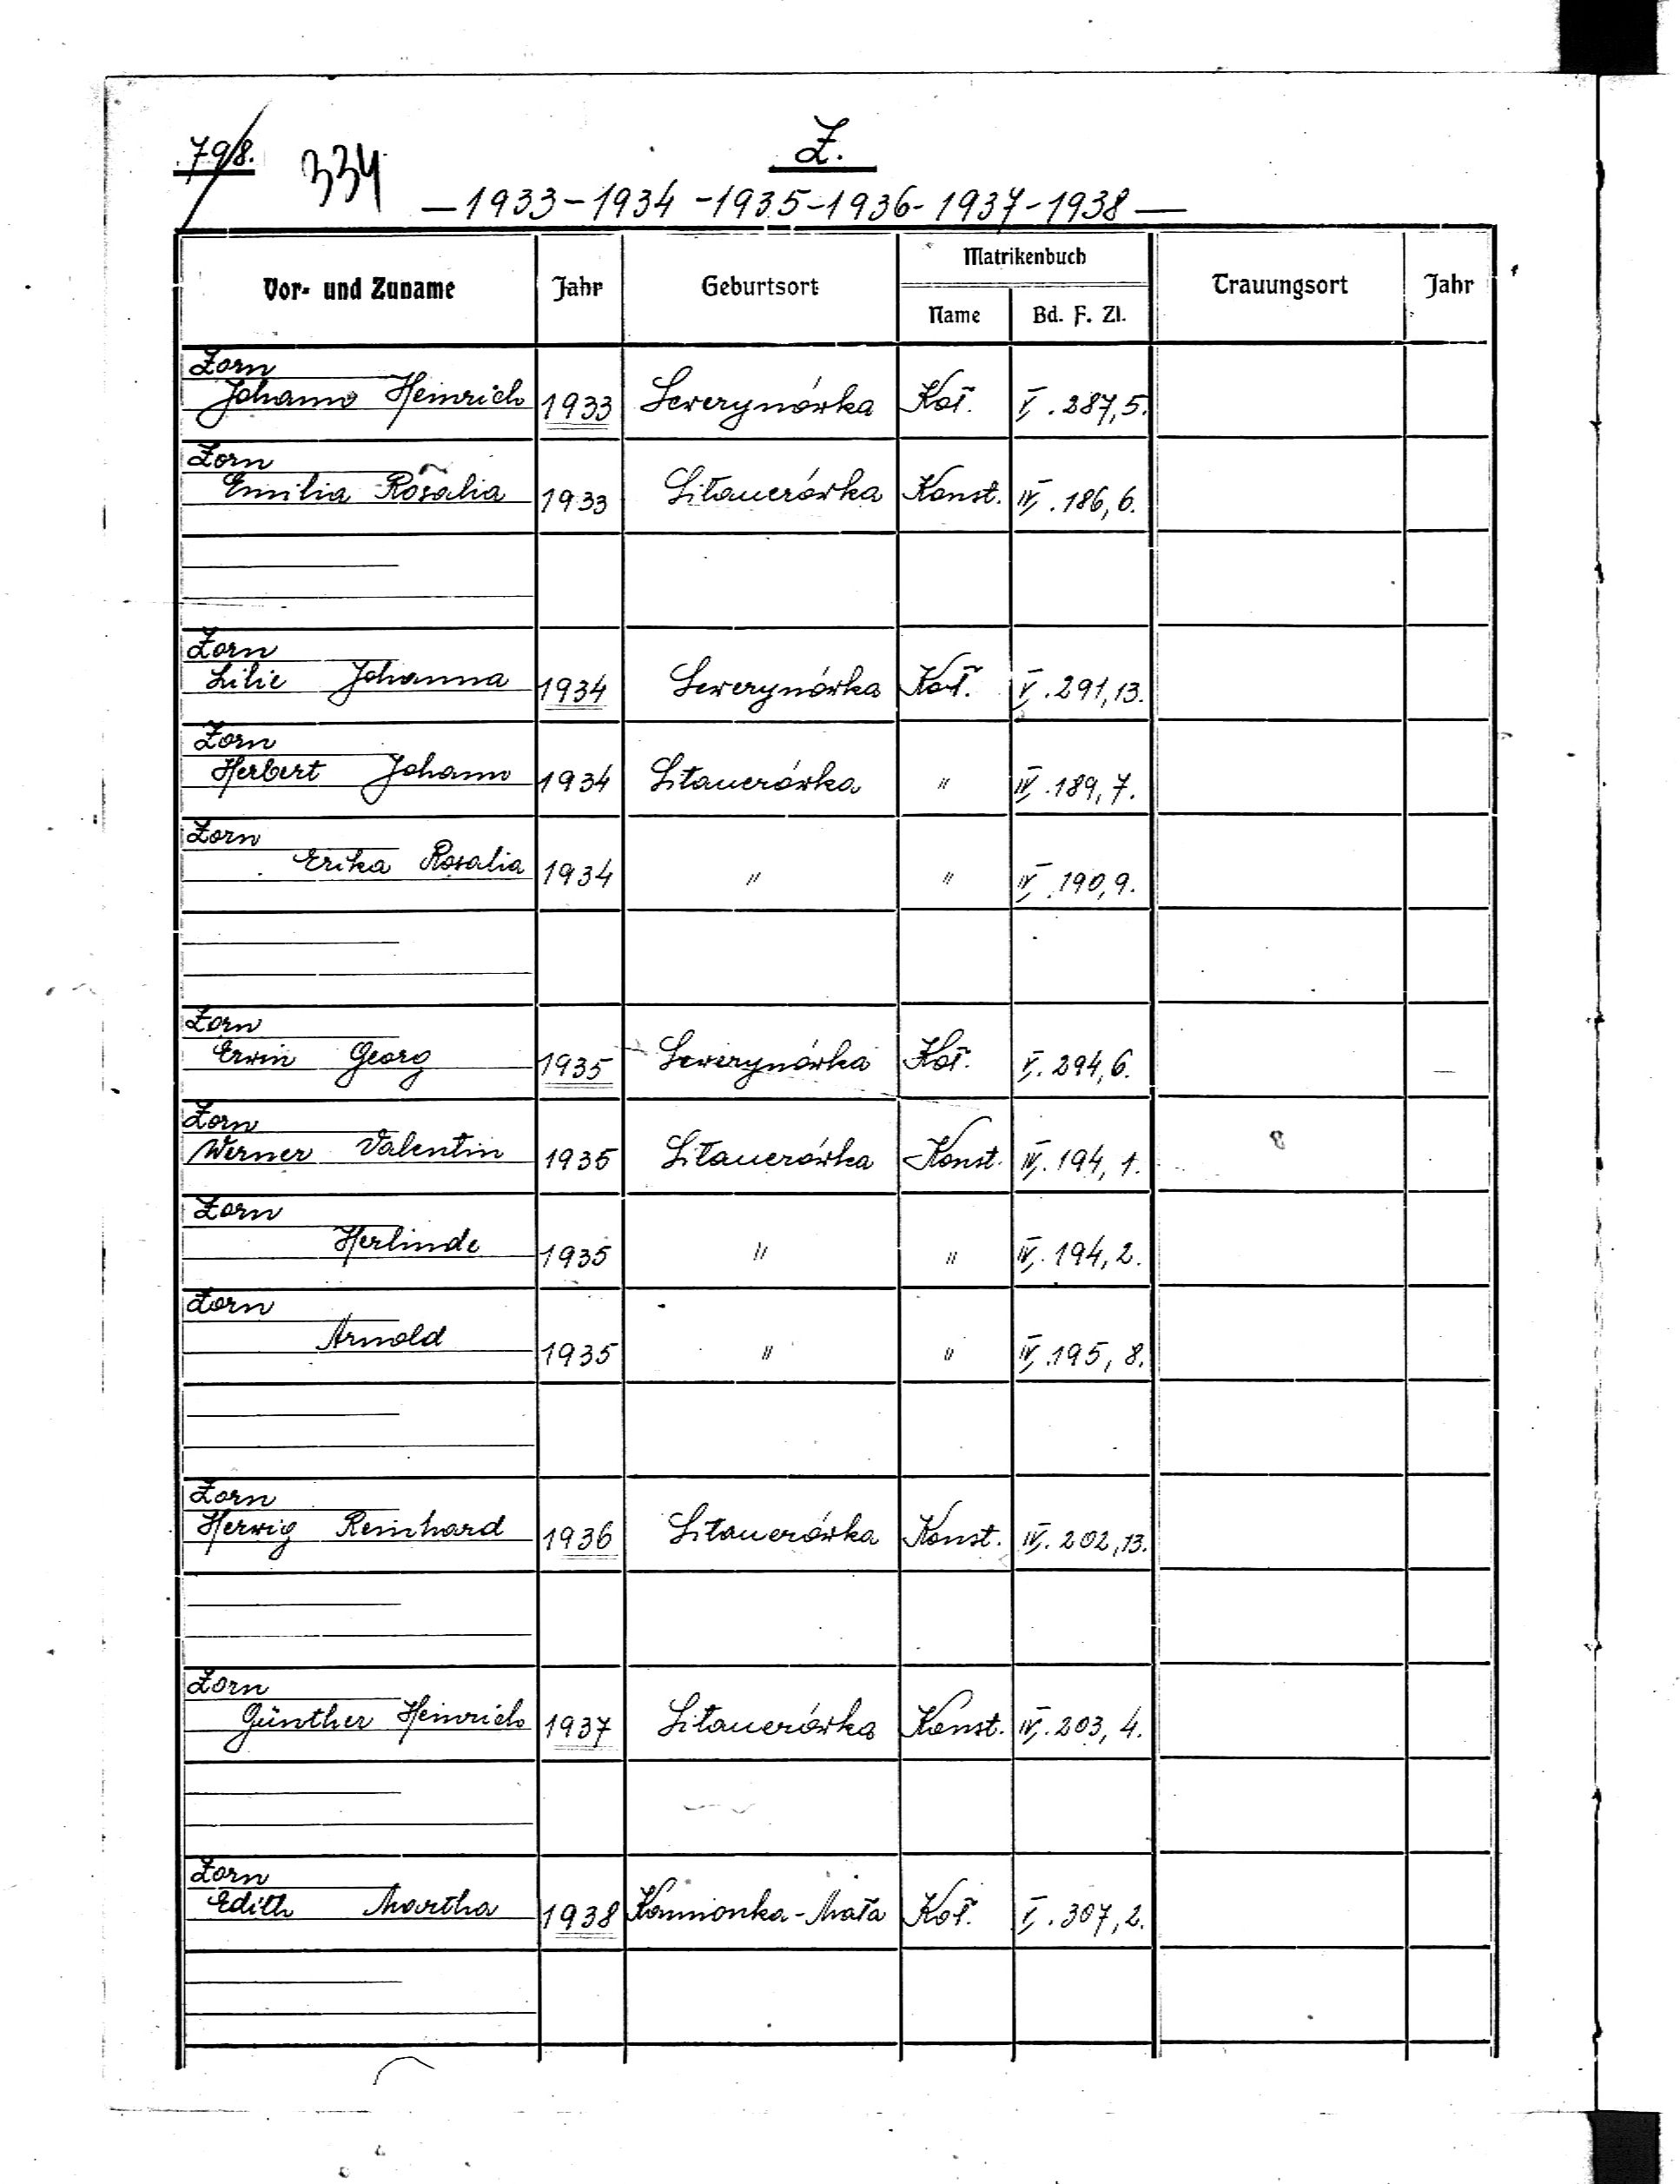 798. 334 Z.
— 1933 - 1934 - 1935 - 1936 - 1937 - 1938 —
Vor- und Zuname Jahr Geburtsort Matrikenbuch Trauungsort Jahr
Name Bd. F. Zl.
Zorn
Johann Heinrich 1933 Sewerynówka Koł. V. 287, 5.
Zorn
Emilia Rosalia 1933 Sitauerówka Konst. IV. 186, 6.
Zorn
Lilie Johanna 1934 Sewerynówka Koł. V. 291, 13.
Zorn
Herbert Johann 1934 Sitauerówka " IV. 189, 7.
Zorn
Erika Rosalia 1934 " " IV. 190, 9.
Zorn
Erwin Georg 1935 Sewerynówka Koł. V. 294, 6.
Zorn
Werner Valentin 1935 Sitauerówka Konst. IV. 194, 1.
Zorn
Herlinde 1935 " " IV. 194, 2.
Zorn
Arnold 1935 " " IV. 195, 8.
Zorn
Herwig Reinhard 1936 Sitauerówka Konst. IV. 202, 13.
Zorn
Günther Heinrich 1937 Sitauerówka Konst. IV. 203, 4.
Zorn
Edith Martha 1938 Kamionka-Mała Koł. V. 307, 2.